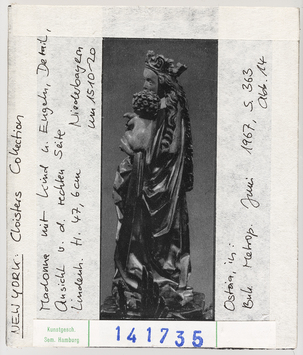 NEW YORK: Cloisters Collection
Madonna mit Kind u. Engeln, Detail,
Ansicht v. d. rechten Seite
Lindenh. H. 47,6cm Niederbayern
um 1510-20
Ostoia, in:
Bull. Metrop. Juni 1967, S. 363
Abb. 14
Kunstgesch.
Sem. Hamburg
141735